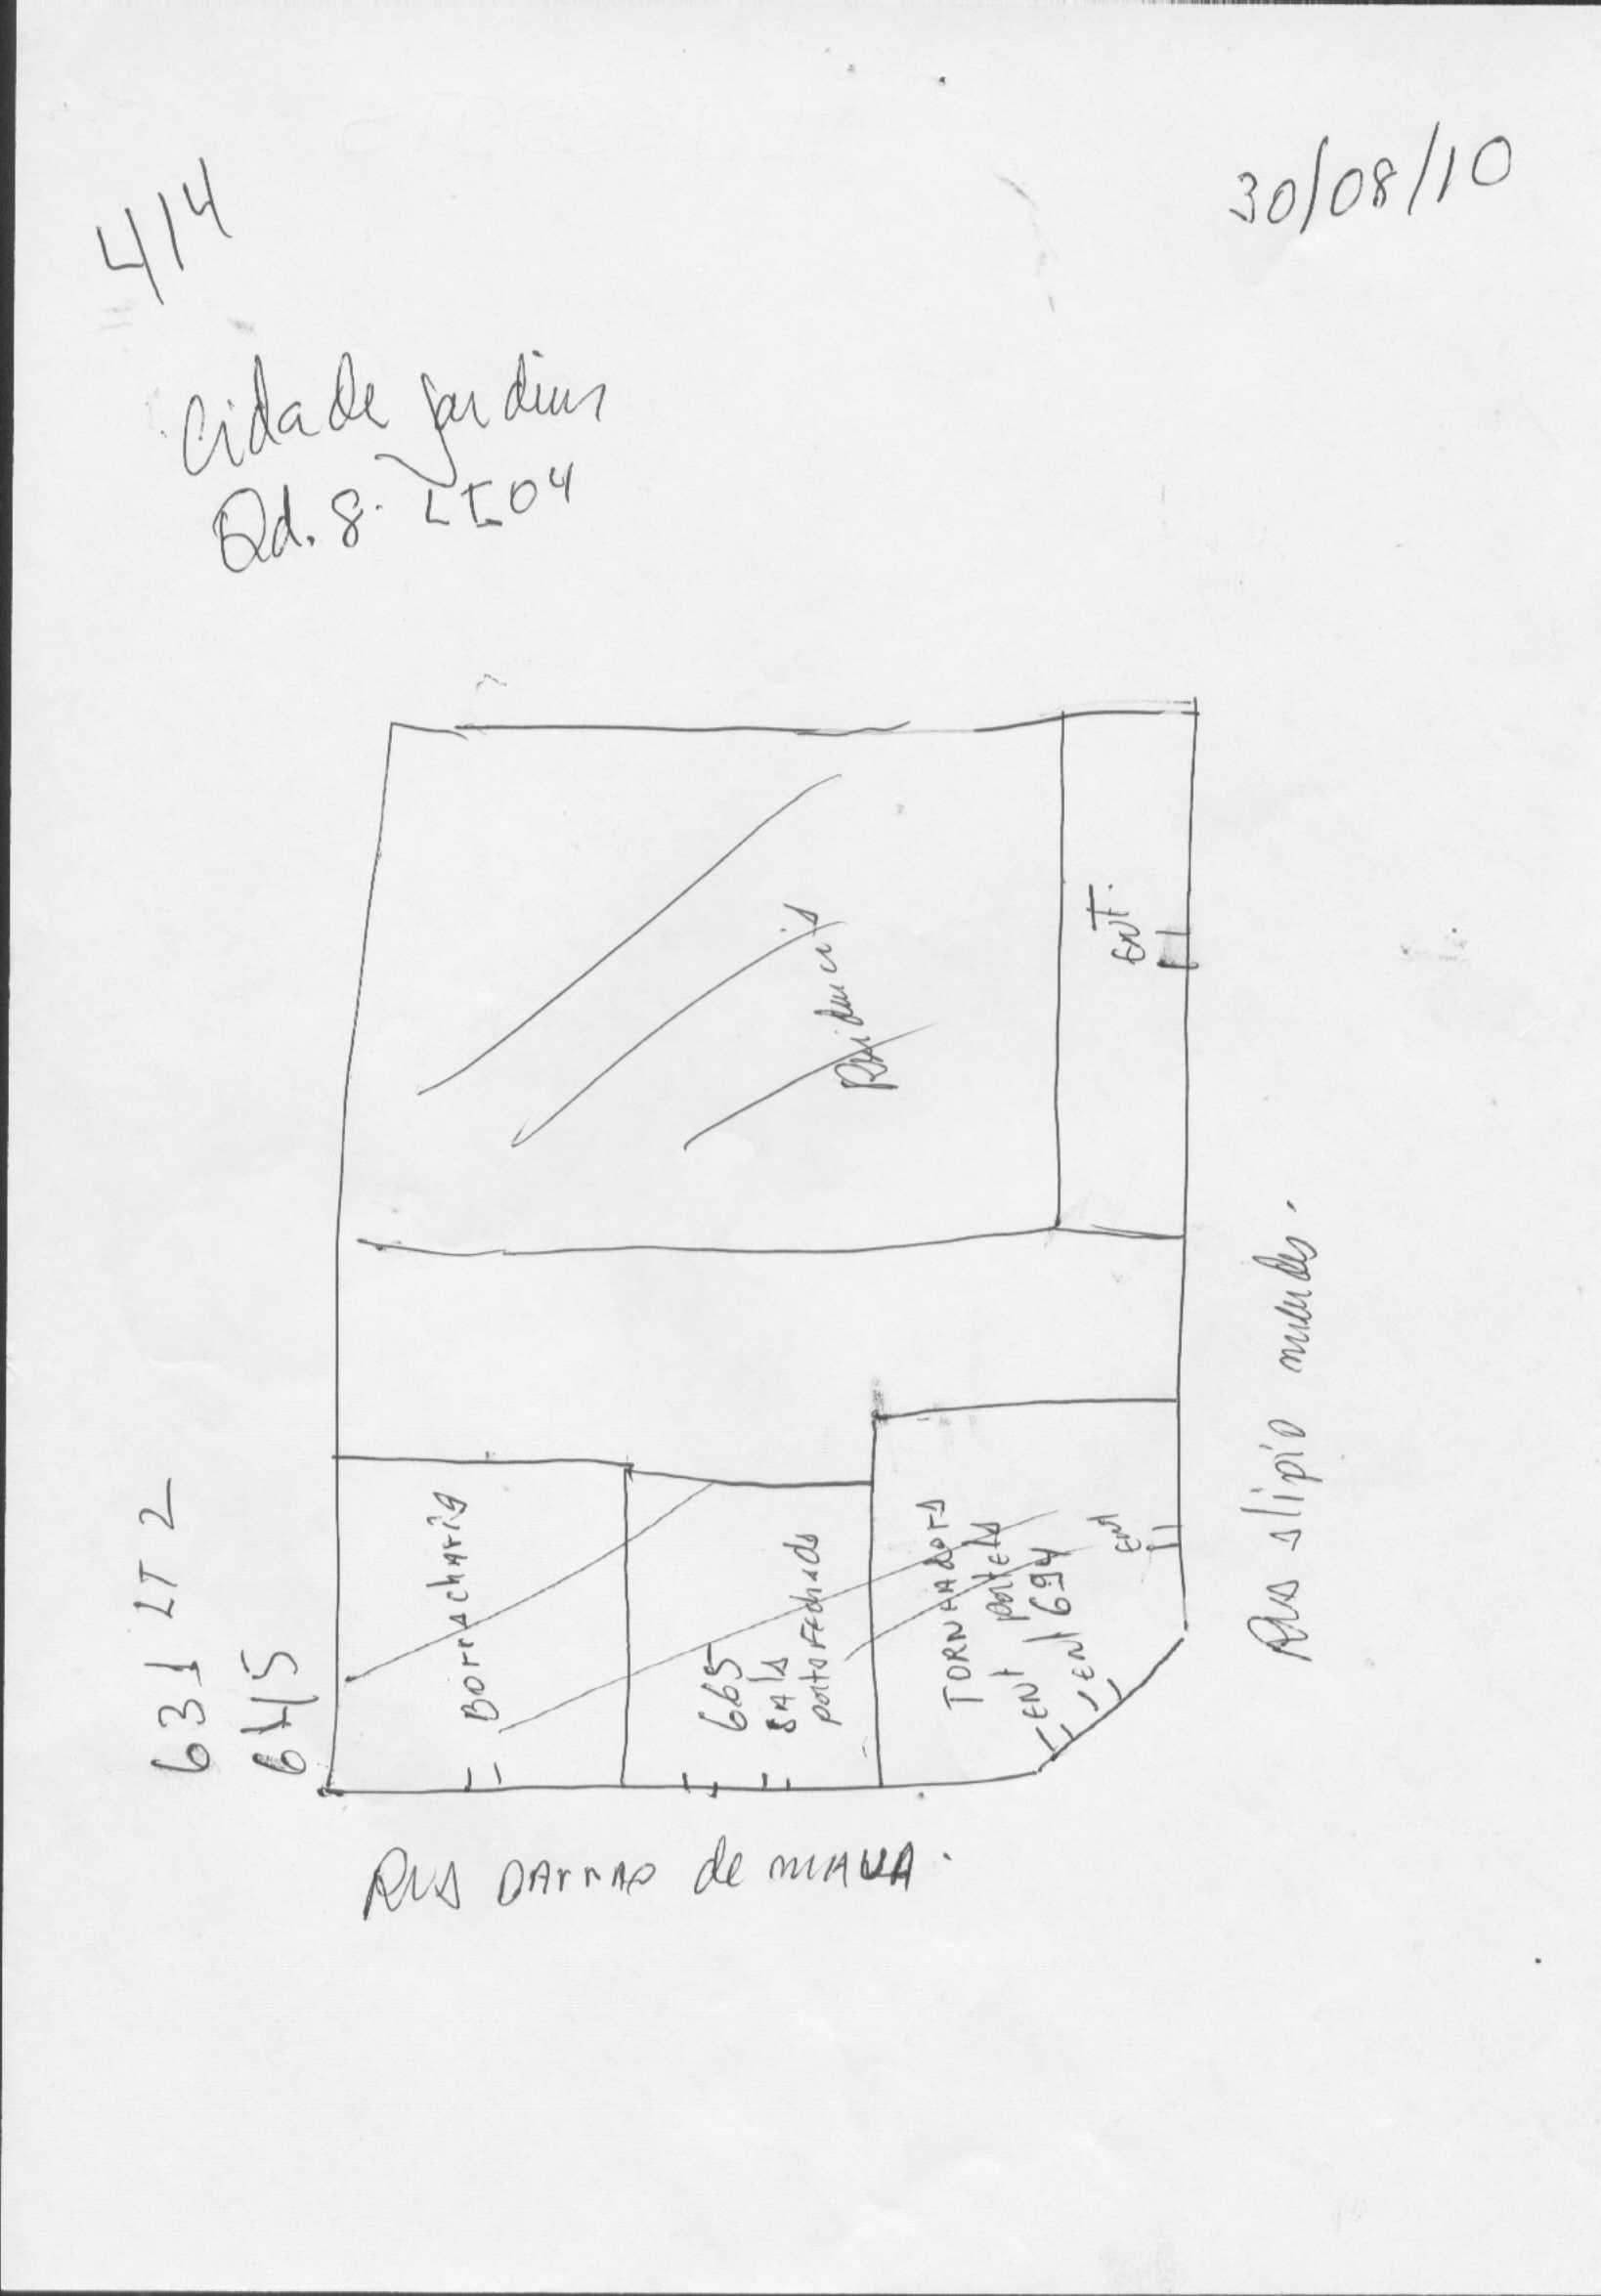 414
30/08/10
Cidade Jardim
Qd. 8. LT.04
Residencia
ENT.
Rua alipio mendes.
631 LT 2
645
Borracharia
665
SALA
porta Fechada
TORNEADORA
ENT portela
ENT 694
ENT
Rua BARRAO de MAUA.